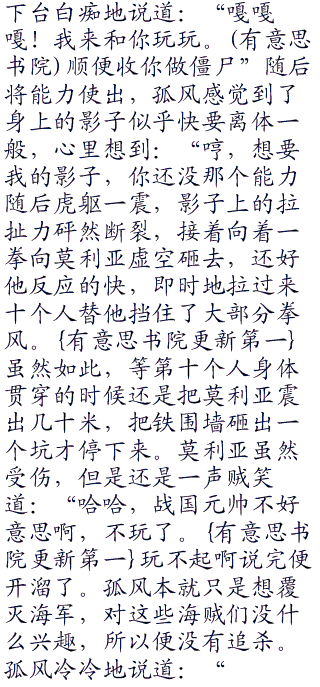 下台白痴地说道：“嘎嘎
嘎！我来和你玩玩。(有意思
书院)顺便收你做僵尸”随后
将能力使出，孤风感觉到了
身上的影子似乎快要离体一
般，心里想到：“哼，想要
我的影子，你还没那个能力
随后虎躯一震，影子上的拉
扯力砰然断裂，接着向着一
拳向莫利亚虚空砸去，还好
他反应的快，即时地拉过来
十个人替他挡住了大部分拳
风。{有意思书院更新第一}
虽然如此，等第十个人身体
贯穿的时候还是把莫利亚震
出几十米，把铁围墙砸出一
个坑才停下来。莫利亚虽然
受伤，但是还是一声贼笑
道：“哈哈，战国元帅不好
意思啊，不玩了。{有意思书
院更新第一}玩不起啊说完便
开溜了。孤风本就只是想覆
灭海军，对这些海贼们没什
么兴趣，所以便没有追杀。
孤风冷冷地说道：“